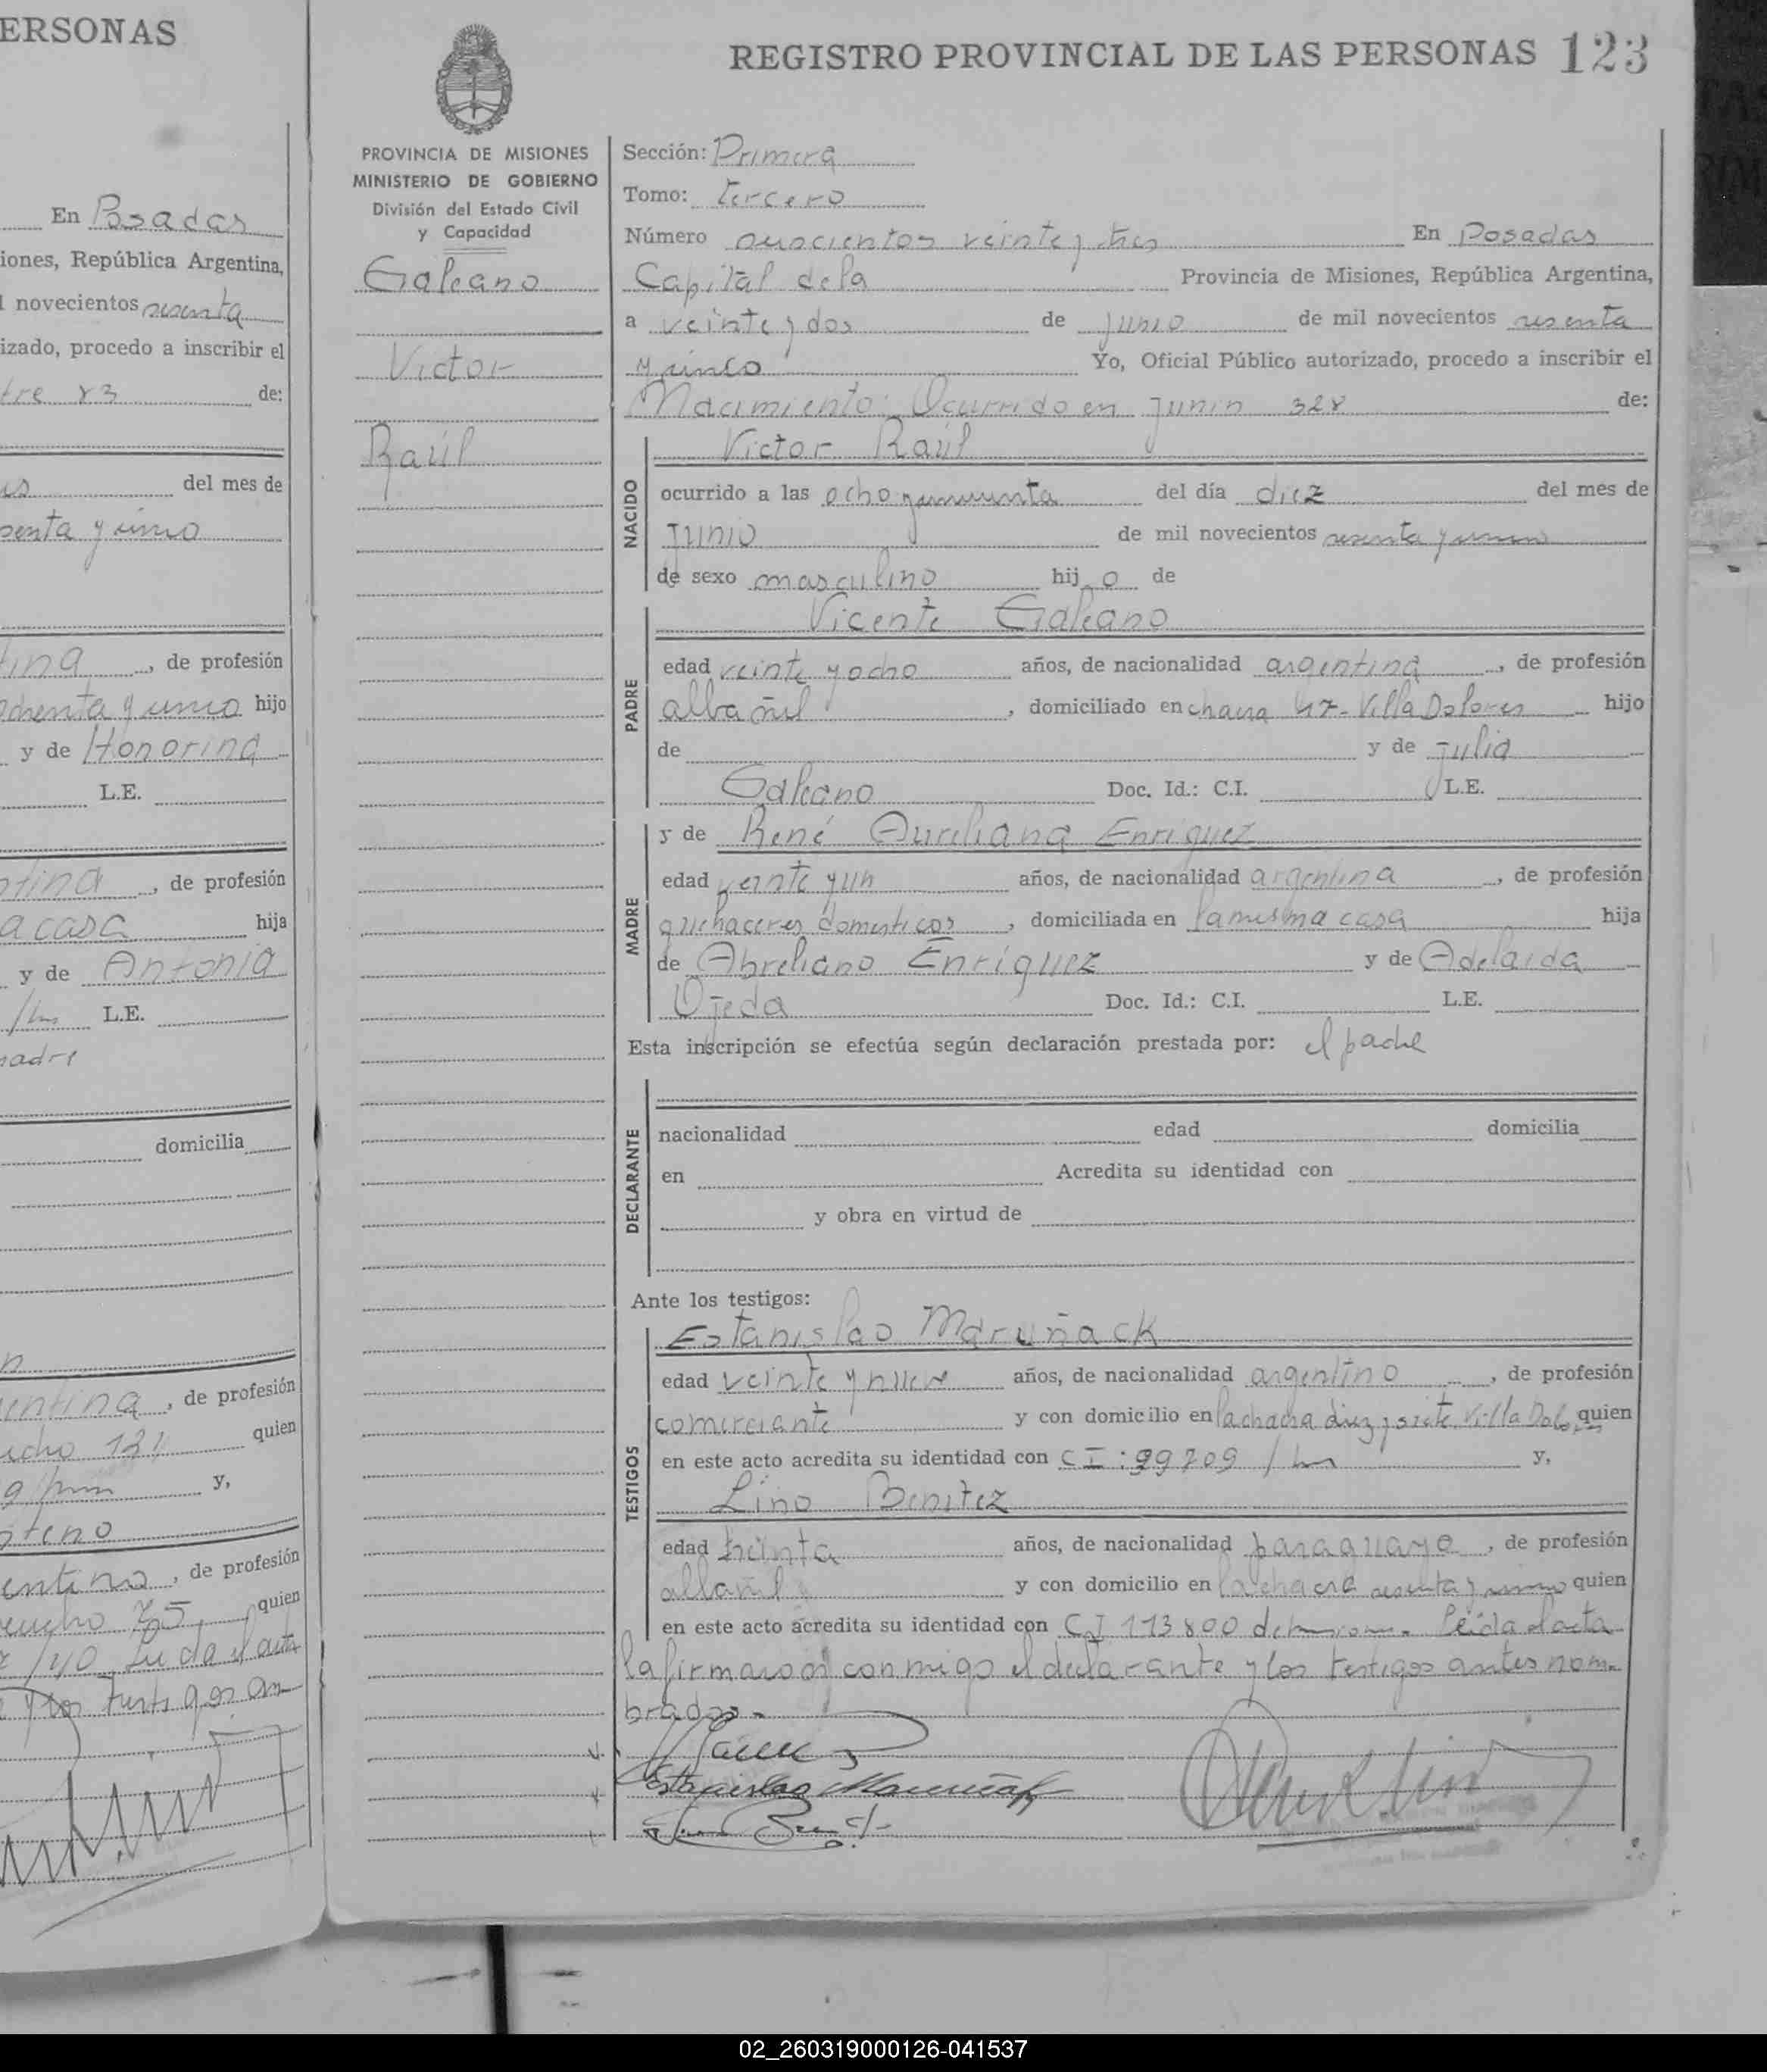 ERSONAS
En Posadas
iones, República Argentina,
l novecientos sesenta
izado, procedo a inscribir el
tre 83 de:
del mes de
senta y cinco
tina, de profesión
ochenta y cinco hijo
y de Honorina
L.E.
ntina, de profesión
a casa hija
y de Antonia
L.E.
madre
domicilia
entina, de profesión
ucho 131 quien
y,
nteno
entino, de profesión
75 quien
Leida el acta
y los testigos an-
REGISTRO PROVINCIAL DE LAS PERSONAS 123
PROVINCIA DE MISIONES
MINISTERIO DE GOBIERNO
División del Estado Civil
y Capacidad
Galeano
Victor
Raúl
Sección: Primera
Tomo: tercero
Número doscientos veinte y tres En Posadas
Capital de la Provincia de Misiones, República Argentina,
a veinte y dos de junio de mil novecientos sesenta
y cinco Yo, Oficial Público autorizado, procedo a inscribir el
Nacimiento: Ocurrido en Junin 328 de:
Victor Raúl
NACIDO
ocurrido a las ocho y cincuenta del día diez del mes de
junio de mil novecientos sesenta y cinco
de sexo masculino hijo de
Vicente Galeano
PADRE
edad veinte y ocho años, de nacionalidad argentina, de profesión
albañil, domiciliado en chacra 47-Villa Dolores hijo
de y de Julia
Galeano Doc. Id.: C.I. L.E.
MADRE
y de René Aureliana Enriquez
edad veinte y un años, de nacionalidad argentina, de profesión
quehaceres domesticos, domiciliada en la misma casa hija
de Abreliano Enriquez y de Adelaida
Ojeda Doc. Id.: C.I. L.E.
Esta inscripción se efectúa según declaración prestada por: el padre
DECLARANTE
nacionalidad edad domicilia
en Acredita su identidad con
y obra en virtud de
Ante los testigos:
Estanislao Maruñack
TESTIGOS
edad veinte y nueve años, de nacionalidad argentino, de profesión
comerciante y con domicilio en la chacra diez y siete Villa Dolores quien
en este acto acredita su identidad con CI: 99209 y,
Lino Benitez
edad treinta años, de nacionalidad paraguayo, de profesión
albañil y con domicilio en la chacra sesenta y quien
en este acto acredita su identidad con CI 113800 de Misiones. Leida el acta
la firmaron conmigo el declarante y los testigos antes nom-
brados.-
Estanislao Maruñak
02_260319000126-041537